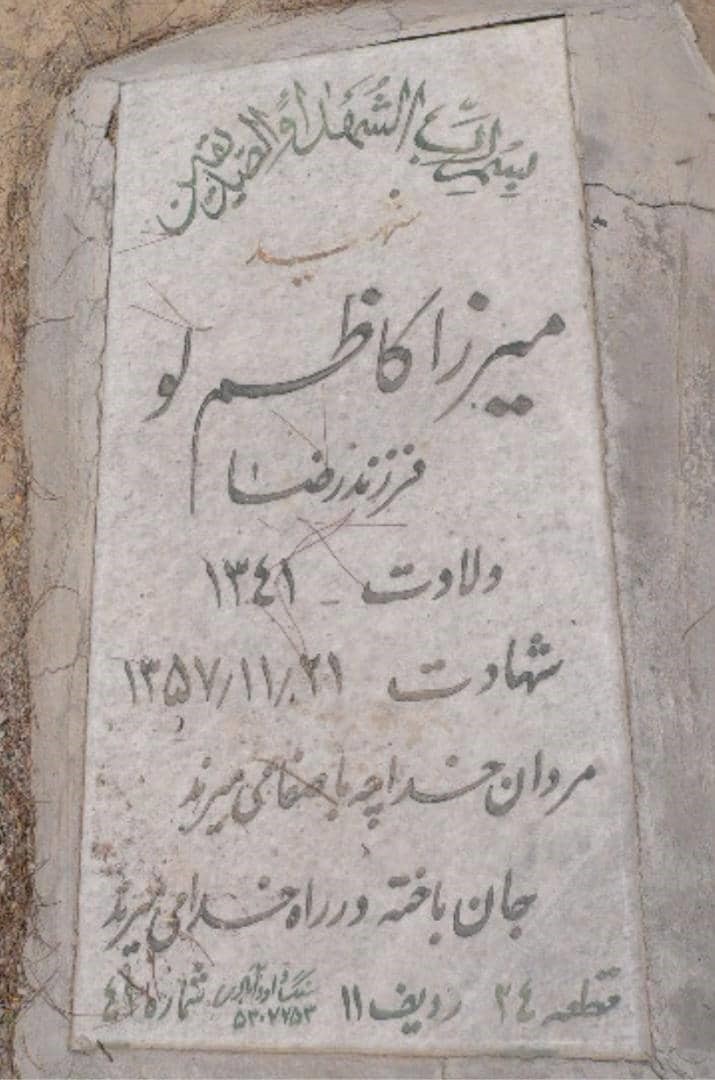 بسم رب الشهداء و الصدیقین
شهید
میرزا کاظم لو
فرزند رضا
ولادت - ۱۳٤۱
شهادت ۱۳۵۷/۱۱/۲۱
مردان خدا چه با صفا می میرند
جان باخته در راه خدا می میرند
قطعه ۲٤ ردیف ۱۱ سنگ داود آبادی ۵۳۰۷۷۵۳ شماره ٤۱